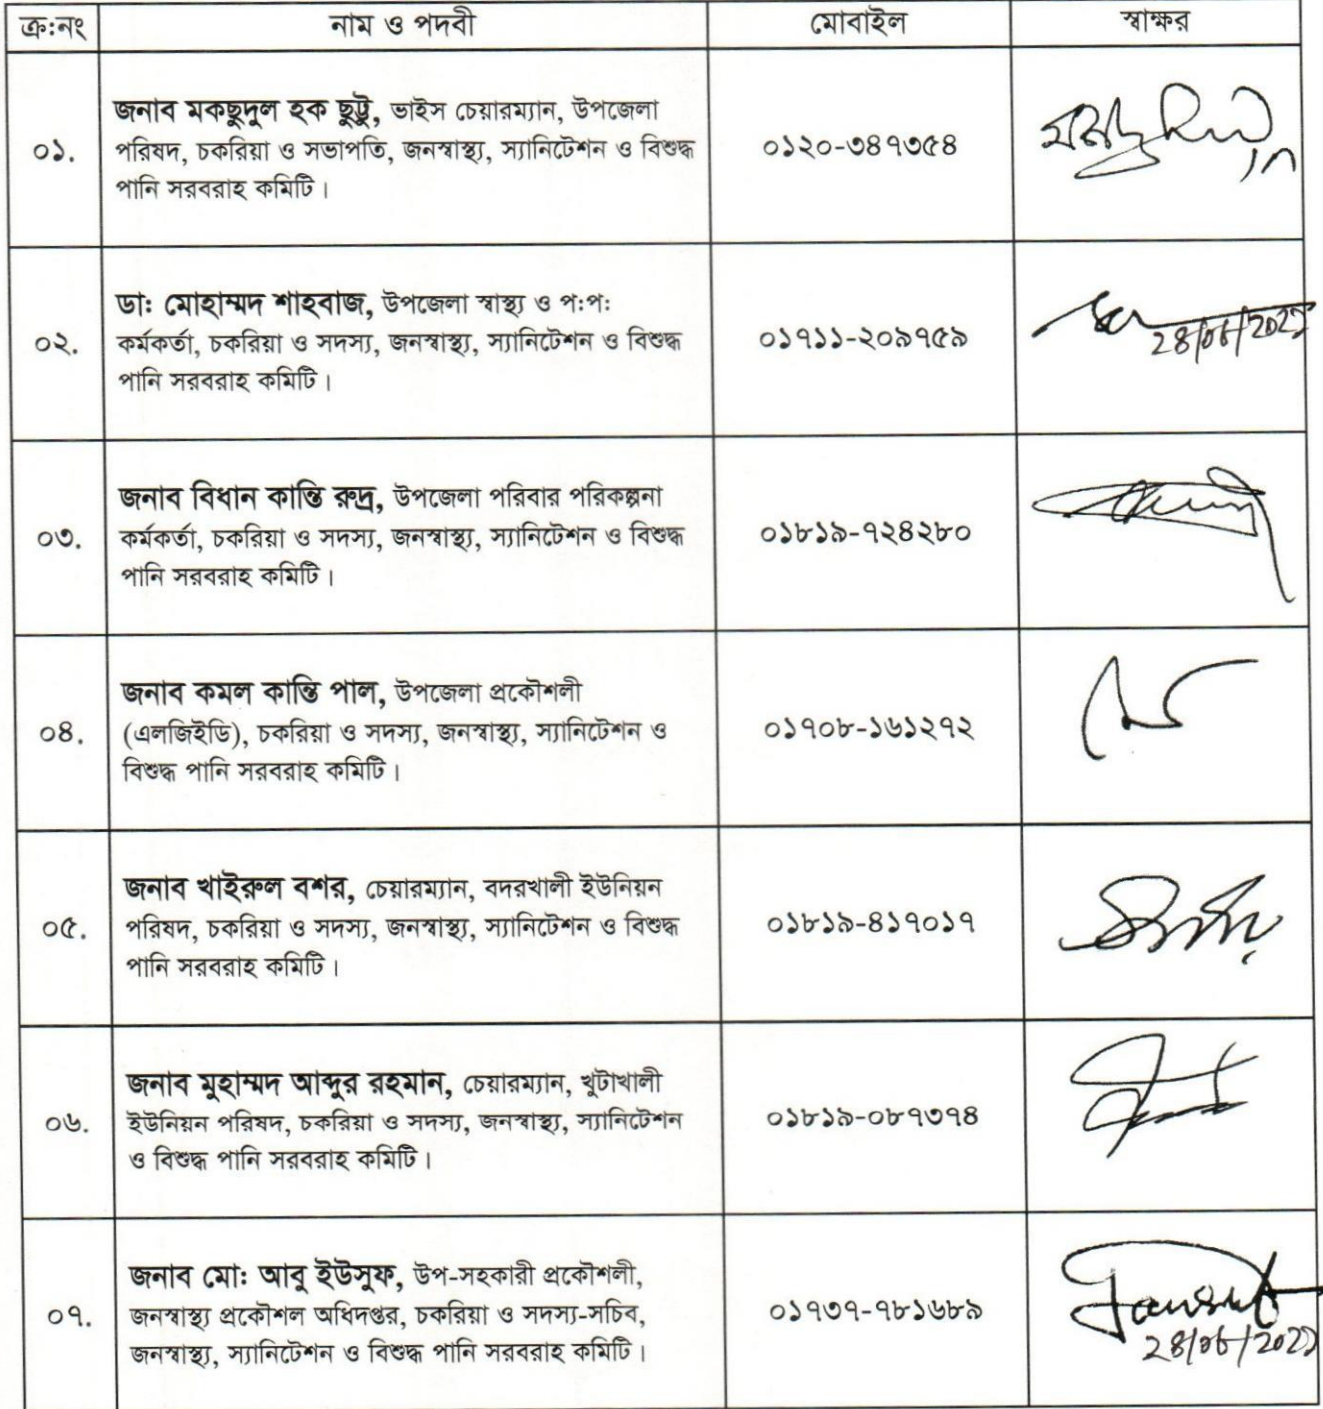 ক্র:নং নাম ও পদবী মোবাইল স্বাক্ষর
০১. জনাব মকছুদুল হক ছুট্টু, ভাইস চেয়ারম্যান, উপজেলা
পরিষদ, চকরিয়া ও সভাপতি, জনস্বাস্থ্য, স্যানিটেশন ও বিশুদ্ধ
পানি সরবরাহ কমিটি।
০১২০-৩৪৭৩৫৪
০২. ডা: মোহাম্মদ শাহবাজ, উপজেলা স্বাস্থ্য ও প:প:
কর্মকর্তা, চকরিয়া ও সদস্য, জনস্বাস্থ্য, স্যানিটেশন ও বিশুদ্ধ
পানি সরবরাহ কমিটি।
০১৭১১-২০৯৭৫৯
০৩. জনাব বিধান কান্তি রুদ্র, উপজেলা পরিবার পরিকল্পনা
কর্মকর্তা, চকরিয়া ও সদস্য, জনস্বাস্থ্য, স্যানিটেশন ও বিশুদ্ধ
পানি সরবরাহ কমিটি।
০১৮১৯-৭২৪২৮০
০৪. জনাব কমল কান্তি পাল, উপজেলা প্রকৌশলী
(এলজিইডি), চকরিয়া ও সদস্য, জনস্বাস্থ্য, স্যানিটেশন ও
বিশুদ্ধ পানি সরবরাহ কমিটি।
০১৭০৮-১৬১২৭২
০৫. জনাব খাইরুল বশর, চেয়ারম্যান, বদরখালী ইউনিয়ন
পরিষদ, চকরিয়া ও সদস্য, জনস্বাস্থ্য, স্যানিটেশন ও বিশুদ্ধ
পানি সরবরাহ কমিটি।
০১৮১৯-৪১৭০১৭
০৬. জনাব মুহাম্মদ আব্দুর রহমান, চেয়ারম্যান, খুটাখালী
ইউনিয়ন পরিষদ, চকরিয়া ও সদস্য, জনস্বাস্থ্য, স্যানিটেশন
ও বিশুদ্ধ পানি সরবরাহ কমিটি।
০১৮১৯-০৮৭৩৭৪
০৭. জনাব মো: আবু ইউসুফ, উপ-সহকারী প্রকৌশলী,
জনস্বাস্থ্য প্রকৌশল অধিদপ্তর, চকরিয়া ও সদস্য-সচিব,
জনস্বাস্থ্য, স্যানিটেশন ও বিশুদ্ধ পানি সরবরাহ কমিটি।
০১৭৩৭-৭৮১৬৮৯